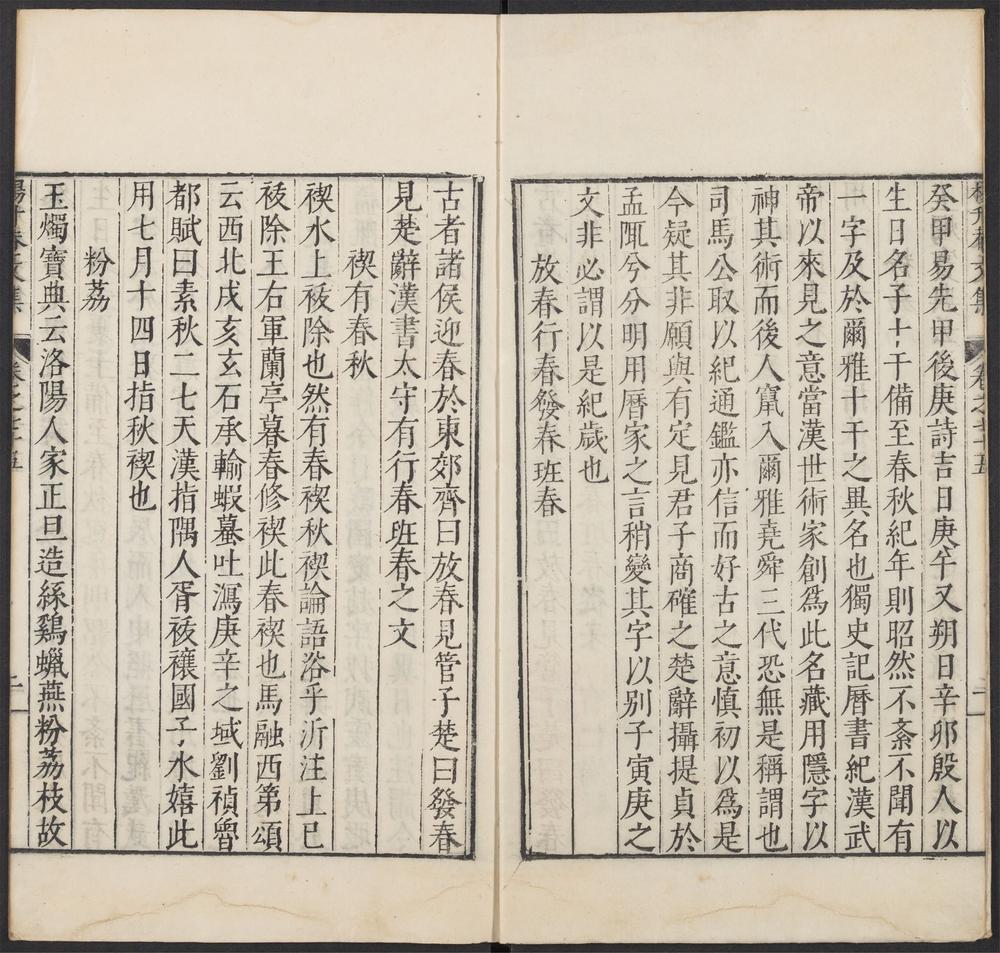 癸甲易先甲後庚詩吉日庚午又朔日辛卯殷人以
生日名子十干備至春秋紀年則昭然不紊不聞有
一字及於爾雅十干之異名也獨史記曆書紀漢武
帝以來見之意當漢世術家創爲此名藏用隱字以
神其術而後人竄入爾雅堯舜三代恐無是稱謂也
司馬公取以紀通鑑亦信而好古之意慎初以爲是
今疑其非願與有定見君子商確之楚辭攝提貞於
孟陬兮分明用曆家之言稍變其字以别子寅庚之
文非必謂以是紀歲也
放春行春發春班春
古者諸侯迎春於東郊齊曰放春見管子楚曰發春
見楚辭漢書太守有行春班春之文
禊有春秋
禊水上祓除也然有春禊秋禊論語浴乎沂注上巳
祓除王右軍蘭亭暮春修禊此春禊也馬融西第頌
云西北戌亥玄石承輸蝦蟇吐瀉庚辛之域劉禎魯
都賦曰素秋二七天漢指隅人胥祓禳國子水嬉此
用七月十四日指秋禊也
粉荔
玉燭寶典云洛陽人家正旦造絲鷄蠟燕粉荔枝故